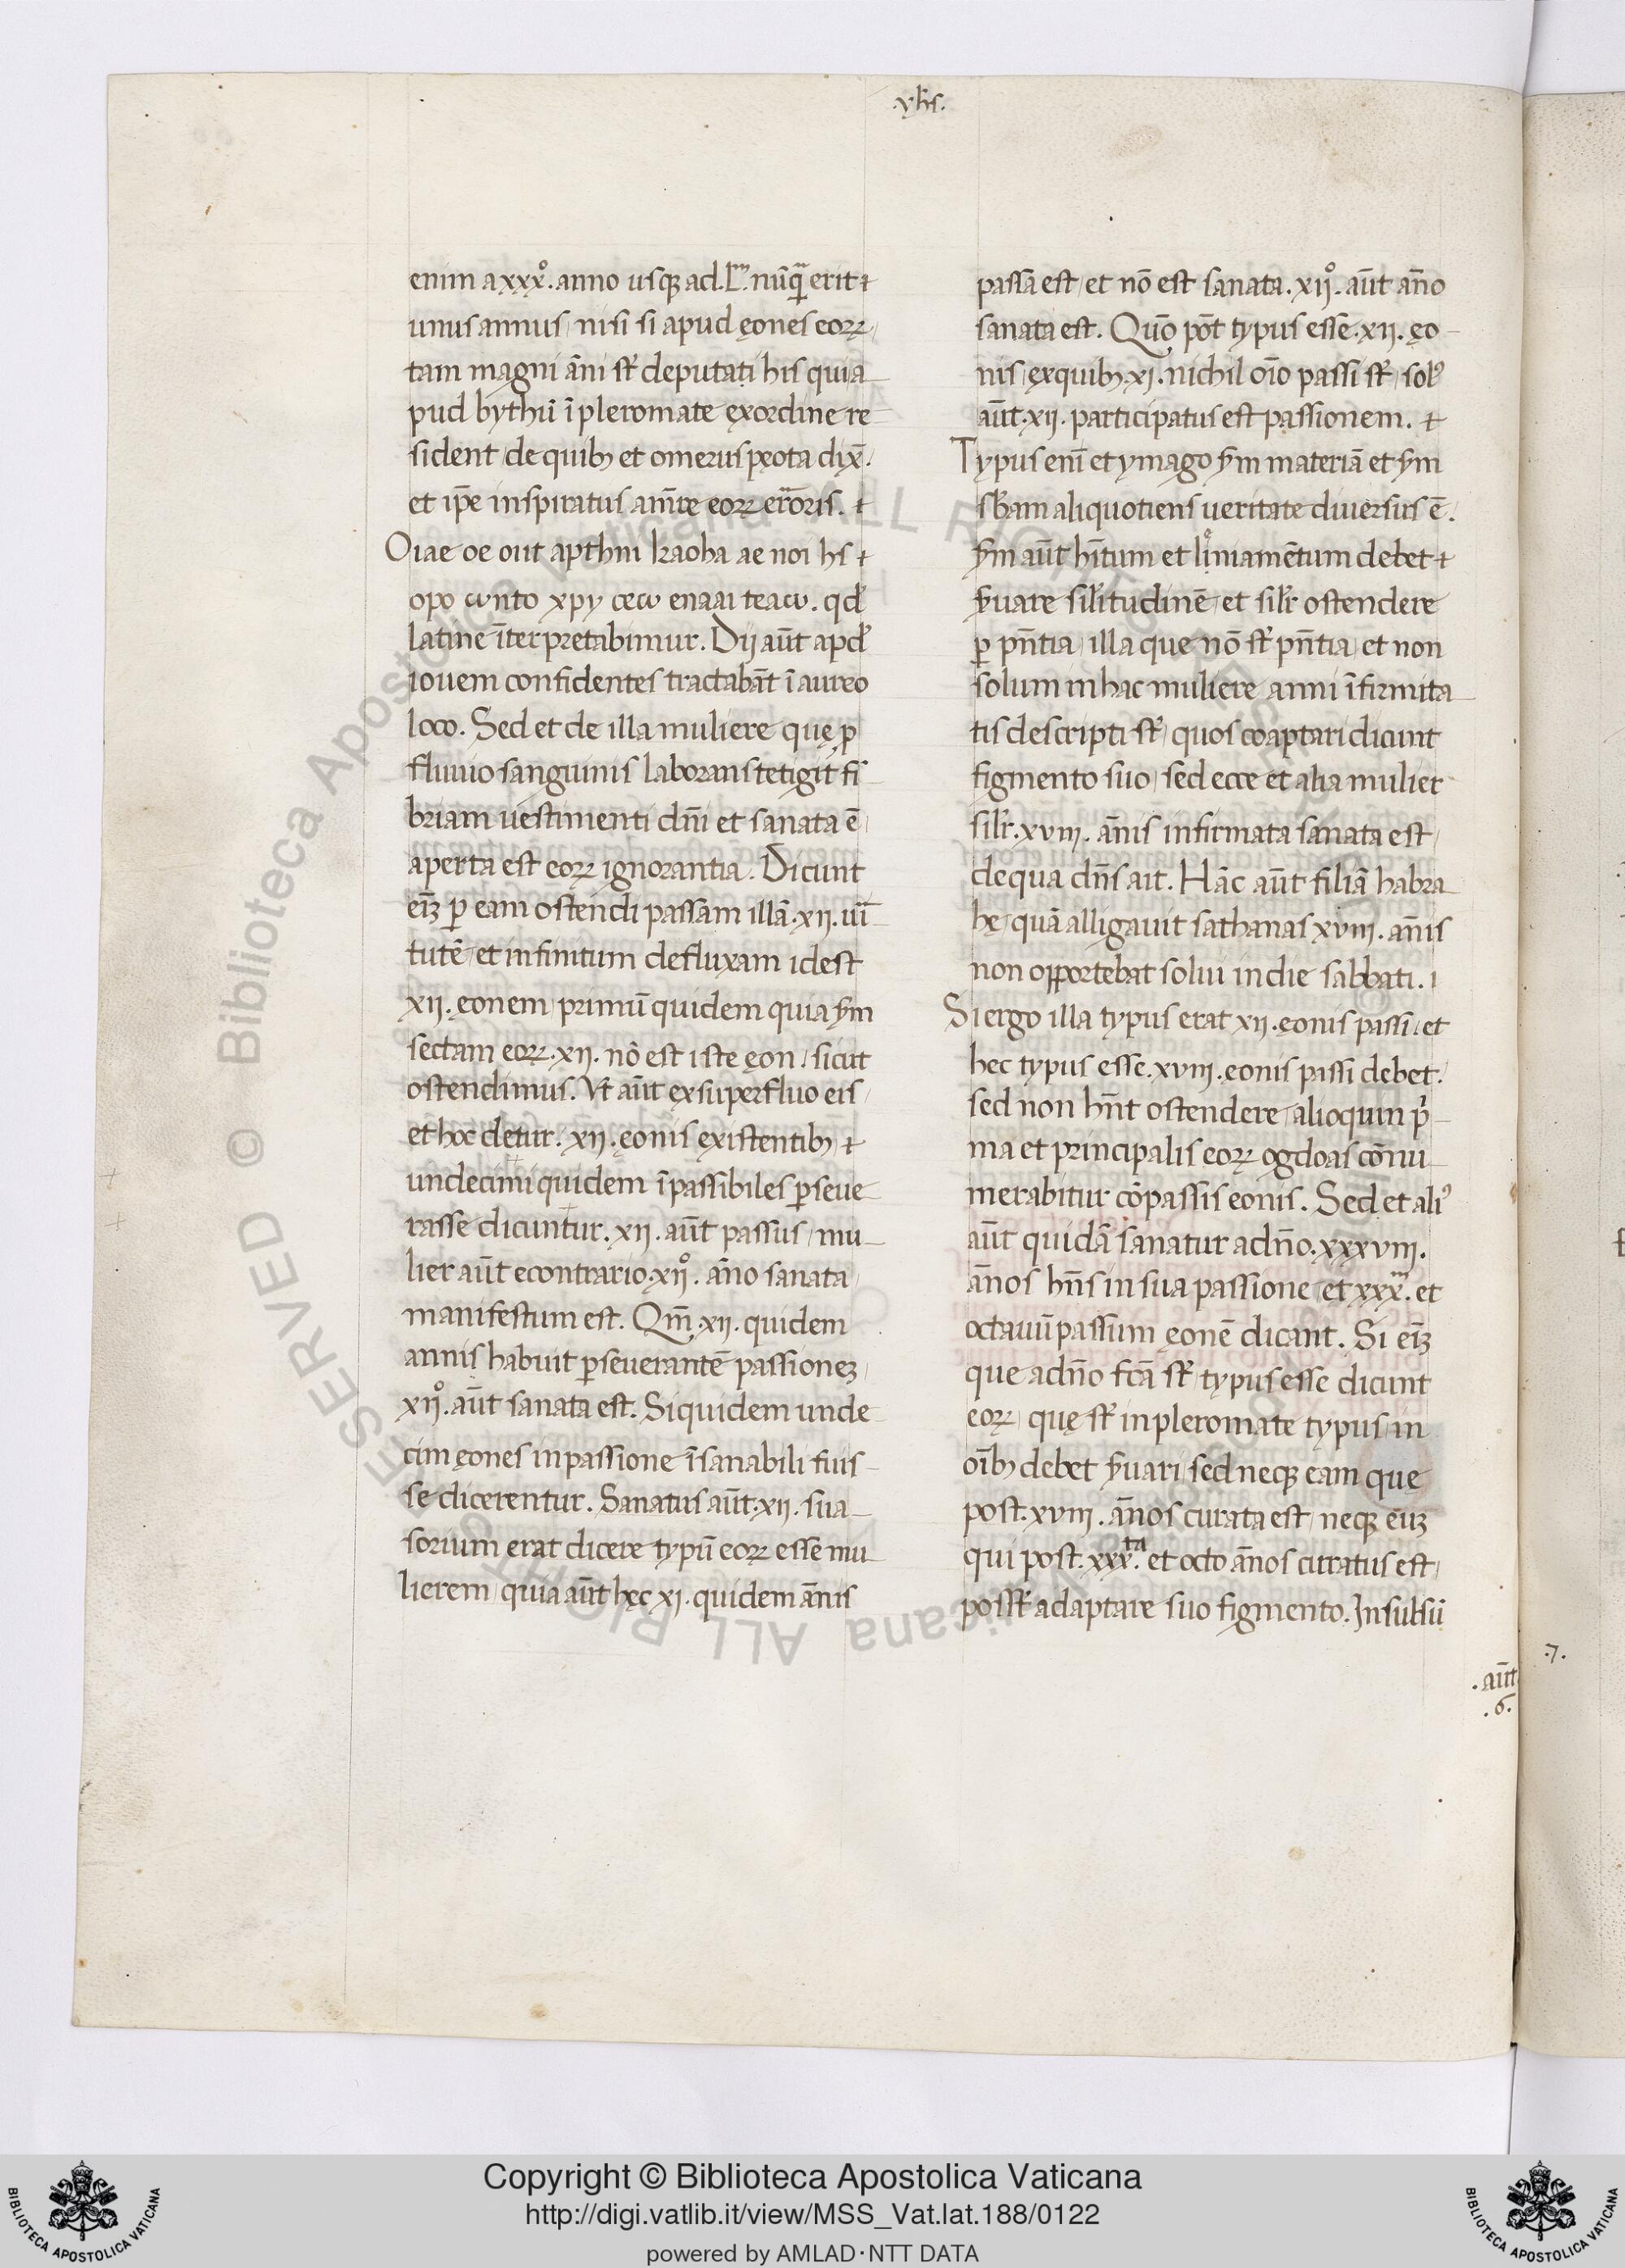 .yhs.
enim a xxx°. anno usq; ad .Lm. nūq̄ erit
unus annus, nisi si apud ęones eoꝝ,
tam magni āni st̄ deputati his qui a
pud bythū ī pleromate ęxordine re
sident, de quib; et omerus pęota dix̄.
et ip̄e inspiratus am̄re eoꝝ erroris.
Oiae oe out apthni kaoha ae noi hs
opo ωnto xpy ceω enaai teaω. qd'
latine īterpretabimur. Dij aūt apd'
iouem confidentes tractabāt ī aureo
loco. Sed et de illa muliere quę ꝓ
fluuio sanguinis laborans tetigit fī
briam uestimenti dn̄i et sanata ē,
aperta est eoꝝ ignorantia. Dicunt
eīz ꝑ eam ostendi passam illā .xii. uī
tutē, et infinitum defluxam idest
xii. ęonem, primū quidem quia ẜm
sectam eoꝝ .xii. nō est iste ęon, sicut
ostendimus. Vt aūt ęxsuperfluo eis,
et hoc detur. xii. ęonis ęxistentib;
undecimi quidem īpassibiles ꝑseue
rasse dicuntur. xii. aūt passus, mu
lier aūt econtrario .xii°. āno sanata,
manifestum est. Qm̄ .xii. quidem
annis habuit ꝑseuerantē passionez,
xii°. aūt sanata est. Siquidem unde
cim ęones in passione īsanabili fuis
se dicerentur. Sanatus aūt .xii. sua
sorium erat dicere typū eoꝝ esse mu
lierem, quia aūt hęc xi. quidem ānis
passa est, et nō est sanata. xii°. aūt āno
sanata est. Quō pōt typus esse .xii. ęo
nis, ęxquib; .xi. nichil oīo passi st̄, sol'
aūt .xii. participatus est passionem.
Typus enī et ymago ẜm materiā et ẜm
sb̄am aliquotiens ueritate diuersus ē.
ẜm aūt hītum et liniamētum debet
ẜuare sil'itudinē, et sil'r ostendere
ꝑ pn̄tia, illa que nō st̄ pn̄tia, et non
solum in hac muliere anni īfirmita
tis descripti st̄, quos coaptari dicunt
figmento suo, sed ecce et alia mulier
sil'r .xviii. ānis infirmata sanata est,
de qua dn̄s ait. Hāc aūt filiā habra
hę, quā alligauit sathanas xviii. ānis
non opportebat solui in die sabbati.
Si ergo illa typus erat xii. ęonis passi, et
hec typus esse .xviii. eonis passi debet.
sed non hn̄t ostendere, alioquin pi
ma et principalis eoꝝ ogdoas cōnu
merabitur cōpassis eonis. Sed et ali'
aūt quidā sanatur adn̄o .xxxviii.
ānos hn̄s in sua passione, et xxxm. et
octauū passum ęonē dicant. Si eīz
que adn̄o fcā st̄, typus esse dicunt
eoꝝ, quę st̄ in pleromate typus, in
oīb; debet ẜuari, sed neq; eam que
post .xviii. ānos curata est, neq; eūz
qui post .xxxta. et octo ānos curatus est,
posst̄ adaptare suo figmento. Insulsū
.7.
.aūt
.6.
Copyright © Biblioteca Apostolica Vaticana
http://digi.vatlib.it/view/MSS_Vat.lat.188/0122
powered by AMLAD·NTT DATA